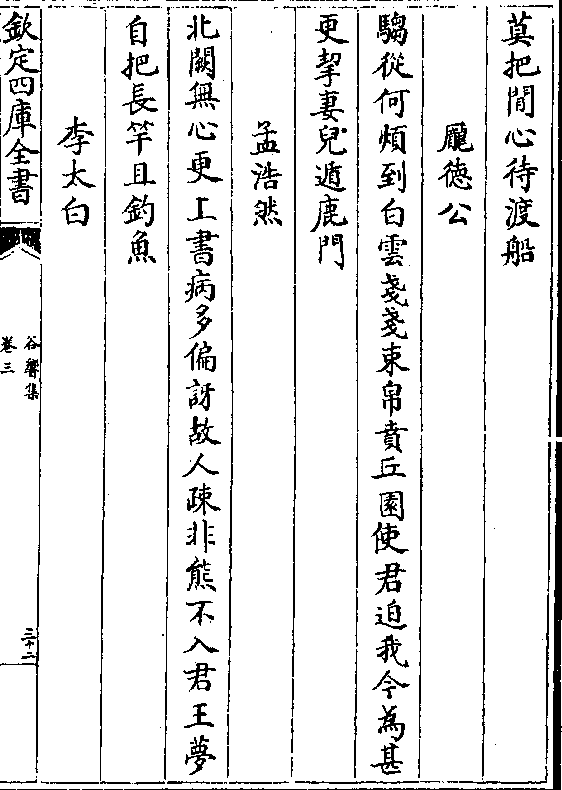 莫把閒心待渡船
龎徳公
騶從何煩到白雲戔戔束帛賁丘園使君迫我今為甚
更挈妻兒遁鹿門
孟浩然
北闕無心更上書病多偏訝故人疎非熊不入君王夢
自把長竿且釣魚
李太白
欽定四庫全書
谷響集
卷三
三十二